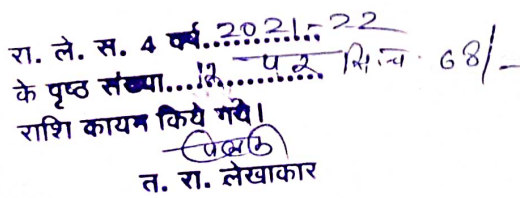 रा. ले. स. 4 वर्ष..2021-22
के पृष्ठ संख्या...12.......पर सिंच. 68/-
राशि कायम किये गये।
त. रा. लेखाकार